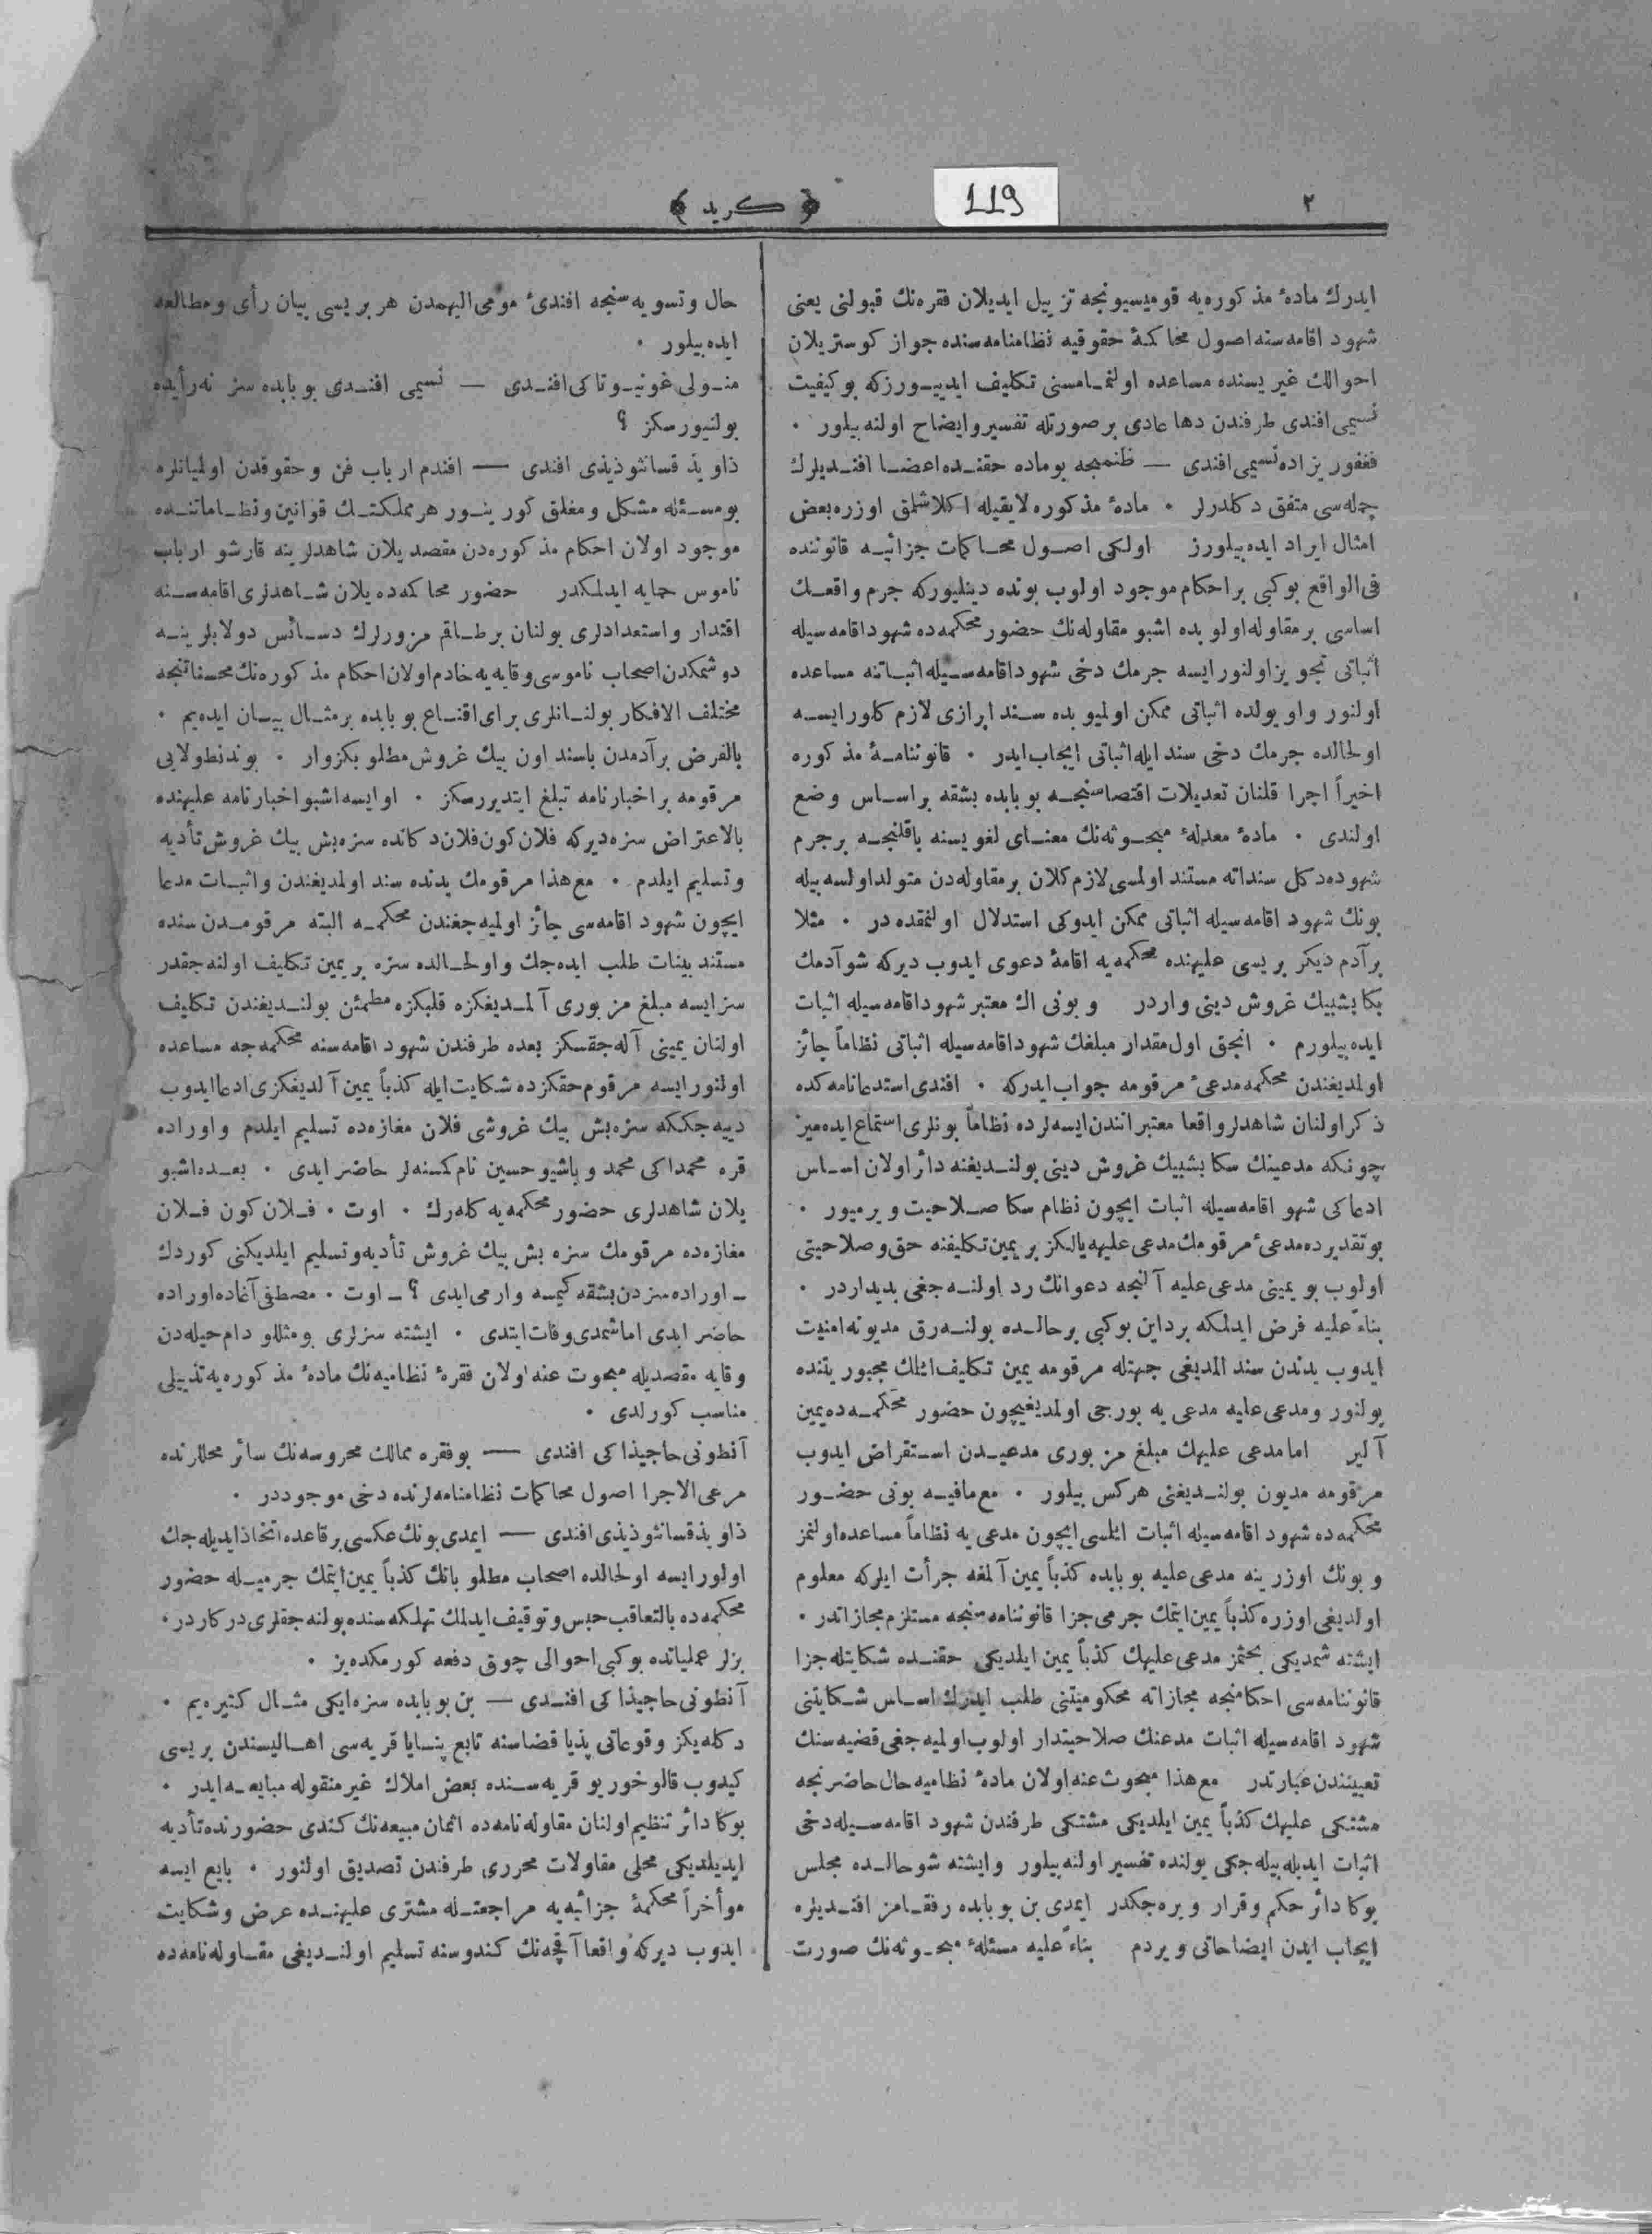 ٢
119
﴿ كريد ﴾
ايدرك مادۀ مذكوره‌يه قوميسيونجه تزييل ايديلان فقره‌نك قبولنى يعنى
شهود اقامه‌سنه اصول محاكمۀ حقوقيه نظامنامه‌سنده جواز كوستريلان
احوالك غيريسنده مساعده اولنمامسنى تكليف ايدييورزكه بو كيفيت
نسيمى افندى طرفندن دها عادى بر صورتله تفسير وايضاح اولنه بيلور ٠
فغفور يزاده نسيمى افندى — ظنمجه بو ماده حقنده اعضا افنديلرك
جمله‌سى متفق دكلدرلر ٠ مادۀ مذكوره لايقيله اكلاشلمق اوزره بعض
امثال ايراد ايده بيلورز اولكى اصول محاكمات جزائيه قانوننده
فى الواقع بوكبى بر احكام موجود اولوب بونده دينليوركه جرم واقعك
اساسى بر مقاوله اولوبده اشبو مقاوله‌نك حضور محكمه‌ده شهود اقامه‌سيله
اثباتى تجويز اولنور ايسه جرمك دخى شهود اقامه‌سيله اثباتنه مساعده
اولنور واو يولده اثباتى ممكن اولميوبده سند ابرازى لازم كلور ايسه
اولحالده جرمك دخى سند ايله اثباتى ايجاب ايدر ٠ قانوننامۀ مذكوره
اخيراً اجرا قلنان تعديلات اقتضاسنجه بو بابده بشقه بر اساس وضع
اولندى ٠ مادۀ معدلۀ مبحوثه‌نك معناى لغويسنه باقلنجه بر جرم
شهوده دكل سنداته مستند اولمسى لازم كلان بر مقاوله‌دن متولد اولسه بيله
بونك شهود اقامه‌سيله اثباتى ممكن ايدوكى استدلال اولنمقده در ٠ مثلا
بر آدم ديكر بريسى عليهنده محكمه‌يه اقامۀ دعوى ايدوب ديركه شو آدمك
بكا بشبيك غروش دينى واردر وبونى اك معتبر شهود اقامه‌سيله اثبات
ايده بيلورم ٠ انجق اول مقدار مبلغك شهود اقامه‌سيله اثباتى نظاماً جائز
اولمديغندن محكمه مدعئ مرقومه جواب ايدركه ٠ افندى استدعانامه كده
ذكر اولنان شاهدلر واقعا معتبراندن ايسه‌لرده نظاماً بونلرى استماع ايده‌ميز
چونكه مدعينك سكا بشبيك غروش دينى بولنديغنه دائر اولان اساس
ادعاكى شهو اقامه‌سيله اثبات ايچون نظام سكا صلاحيت ويرميور ٠
بو تقديرده مدعئ مرقومك مدعى عليه يالكز بر يمين تكليفنه حق وصلاحيتى
اولوب بو يمينى مدعى عليه آلنجه دعوانك رد اولنه جغى بديداردر ٠
بناءً عليه فرض ايدلمكه بر داين بوكبى بر حالده بولنه‌رق مديونه امنيت
ايدوب يدندن سند المديغى جهتله مرقومه يمين تكليف ايتلك مجبوريتنده
بولنور ومدعى عليه مدعى يه بورجى اولمديغيچون حضور محكمه‌ده يمين
آلير اما مدعى عليهك مبلغ مزبورى مدعيدن استقراض ايدوب
مرقومه مديون بولنديغنى هركس بيلور ٠ مع مافيه بونى حضور
محكمه‌ده شهود اقامه‌سيله اثبات ايتلسى ايچون مدعى يه نظاماً مساعده اولنمز
وبونك اوزرينه مدعى عليه بو بابده كذباً يمين آلمغه جرأت ايلركه معلوم
اولديغى اوزره كذباً يمين ايتمك جرمى جزا قانوننامه‌سنجه مستلزم مجازاتدر ٠
ايشته شمديكى بحثمز مدعى عليهك كذباً يمين ايلديكى حقنده شكايتله جزا
قانوننامه‌سى احكامنجه مجازاته محكوميتنى طلب ايدرك اساس شكايتنى
شهود اقامه‌سيله اثبات مدعينك صلاحيتدار اولوب اوليه جغى قضيه‌سنك
تعييننندن عبارتدر مع هذا مبحوث عنه اولان مادۀ نظاميه حال حاضرنجه
مشتكى عليهك كذباً يمين ايلديكى مشتكى طرفندن شهود اقامه‌سيله دخى
اثبات ايديله بيله جكى يولنده تفسير اولنه بيلور وايشته شو حالده مجلس
بوكا دائر حكم وقرار ويره جكدر ايمدى بن بو بابده رفقامز افنديلره
ايجاب ايدن ايضاحاتى ويردم بناءً عليه مسئلۀ مبحوثه‌نك صورت
حال وتسويه‌سنجه افندئ مومى اليهمدن هر بريسى بيان رأى ومطالعه
ايده بيلور ٠
منولى غونيوتاكى افندى — نسيمى افندى بو بابده سز نه رأيده
بولنيورسكز ؟
ذاويذ قسانثوذيذى افندى — افندم ارباب فن وحقوقدن اولميانلره
بو مسئله مشكل ومغلق كورينور هر مملكتك قوانين ونظاماتنده
موجود اولان احكام مذكوره‌دن مقصد يلان شاهدلرينه قارشو ارباب
ناموس حمايه ايدلمكدر حضور محاكمه‌ده يلان شاهدلرى اقامه‌سنه
اقتدار واستعدادلرى بولنان بر طاقم مزورلرك دسائس دولابلرينه
دوشمكدن اصحاب ناموسى وقايه‌يه خادم اولان احكام مذكوره‌نك محسناتنجه
مختلف الافكار بولنانلرى براى اقناع بو بابده بر مثال بيان ايده‌يم ٠
بالفرض بر آدمدن باسند اون بيك غروش مطلوبكزوار ٠ بوندنطولايى
مرقومه بر اخبارنامه تبلغ ايتديررسكز ٠ او ايسه اشبو اخبارنامه عليهنده
بالاعتراض سزه ديركه فلان كون فلان دكانده سزه بش بيك غروش تأديه
وتسليم ايلدم ٠ مع هذا مرقومك يدنده سند اولمديغندن واثبات مدعا
ايچون شهود اقامه‌سى جائز اولميه جغندن محكمه البته مرقومدن سنده
مستند بينات طلب ايده جك واولحالده سزه بر يمين تكليف اولنه جقدر
سز ايسه مبلغ مزبورى آلمديغكزه قلبكزه مطمئن بولنديغندن تكليف
اولنان يمينى آله جقسكز بعده طرفندن شهود اقامه‌سنه محكمه جه مساعده
اولنور ايسه مرقوم حقكزده شكايت ايله كذباً يمين آلديغكزى ادعا ايدوب
دييه جككه سزه بش بيك غروشى فلان مغازه‌ده تسليم ايلدم واوراده
قره محمداكى محمد وباشيو حسين نام كمسنه‌لر حاضر ايدى ٠ بعده اشبو
يلان شاهدلرى حضور محكمه‌يه كله‌رك ٠ اوت ٠ فلان كون فلان
مغازه‌ده مرقومك سزه بش بيك غروش تأديه وتسليم ايلديكنى كوردك
ـ اوراده سزدن بشقه كيمسه وارمى ايدى ؟ ـ اوت ٠ مصطفى آغاده اوراده
حاضر ايدى اما شمدى وفات ايتدى ٠ ايشته سزلرى بو مثللو دام حيله‌دن
وقايه مقصديله مبحوث عنه اولان فقرۀ نظاميه‌نك مادۀ مذكوره‌يه تذييلى
مناسب كورلدى ٠
آنطونى حاجيذاكى افندى — بو فقره ممالك محروسه‌نك سائر محللرنده
مرعى الاجرا اصول محاكمات نظامنامه‌لرنده دخى موجوددر ٠
ذاويذ قسانثوذيذى افندى — ايمدى بونك عكسى بر قاعده اتخاذ ايديله جك
اولور ايسه اولحالده اصحاب مطلوباتك كذباً يمين ايتمك جرميله حضور
محكمه‌ده بالتعاقب حبس وتوقيف ايدلمك تهلكه‌سنده بولنه جقلرى دركاردر ٠
بزلر عملياتده بوكبى احوالى چوق دفعه كورمكده‌يز ٠
آنطونى حاجيذاكى افندى — بن بو بابده سزه ايكى مثال كتيره‌يم ٠
دكله‌يكز وقوعاتى پذيا قضاسنه تابع پنايا قريه‌سى اهاليسندن بريسى
كيدوب قالوخوريو قريه‌سنده بعض املاك غير منقوله مبايعه ايدر ٠
بوكا دائر تنظيم اولنان مقاوله‌نامه‌ده اثمان مبيعه‌نك كندى حضورنده تأديه
ايديلديكى محلى مقاولات محررى طرفندن تصديق اولنور ٠ بايع ايسه
موأخراً محكمۀ جزائيه‌يه مراجعتله مشترى عليهنده عرض وشكايت
ايدوب ديركه واقعا آقچه‌نك كندوسنه تسليم اولنديغى مقاوله‌نامه‌ده